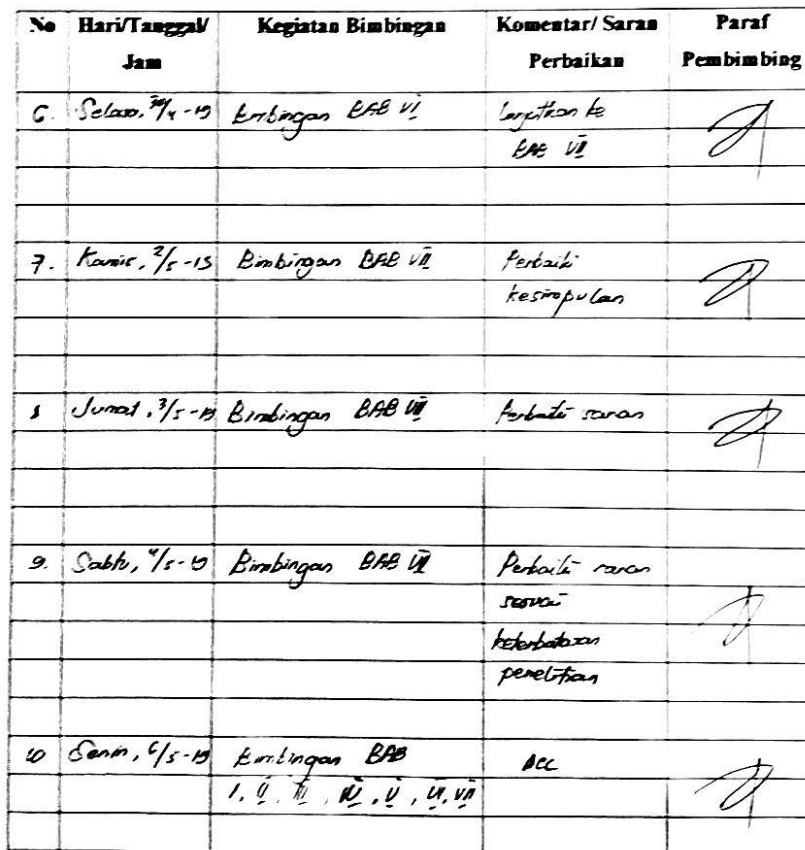 No Hari/Tanggal/ Kegiatan Bimbingan Komentar/ Saran Paraf
Jam Perbaikan Pembimbing
6. Selasa, 30/4-19 Bimbingan BAB VI Lanjutkan ke
BAB VII
7. Kamis, 2/5-19 Bimbingan BAB VII Perbaiki
kesimpulan
8 Jumat, 3/5-19 Bimbingan BAB VII Perbaiki saran
9. Sabtu, 4/5-19 Bimbingan BAB VII Perbaiki saran
sesuai
keterbatasan
penelitian
10 Senin, 6/5-19 Bimbingan BAB ACC
I, II, III, IV, V, VI, VII